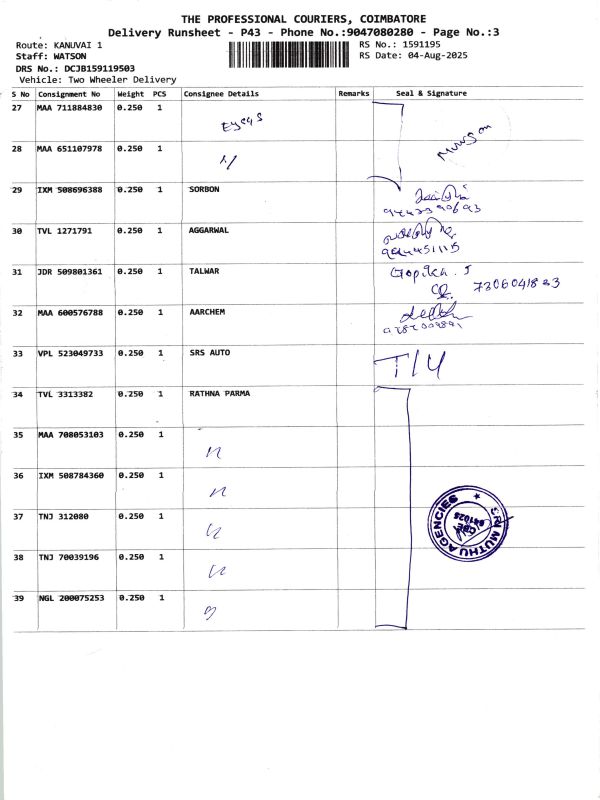 THE PROFESSIONAL COURIERS, COIMBATORE
Delivery Runsheet - P43 - Phone No.:9047080280 - Page No.:3
Route: KANUVAI 1 RS No.: 1591195
Staff: WATSON RS Date: 04-Aug-2025
DRS No.: DCJB159119503
Vehicle: Two Wheeler Delivery
S No Consignment No Weight PCS Consignee Details Remarks Seal & Signature
27 MAA 711884830 0.250 1
28 MAA 651107978 0.250 1
29 IXM 508696388 0.250 1 SORBON
30 TVL 1271791 0.250 1 AGGARWAL
31 JDR 509801361 0.250 1 TALWAR Gopika . S
32 MAA 600576788 0.250 1 AARCHEM
33 VPL 523049733 0.250 1 SRS AUTO
34 TVL 3313382 0.250 1 RATHNA PARMA
35 MAA 708053103 0.250 1
36 IXM 508784360 0.250 1
37 TNJ 312080 0.250 1
38 TNJ 70039196 0.250 1
39 NGL 200075253 0.250 1
SRI MUTHU AGENCIES
CBE
641025